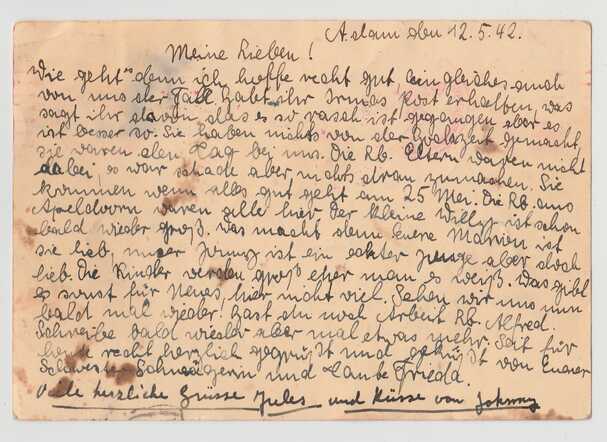 A.dam den 12.5.42.
Meine Lieben!
Wie geht's denn ich hoffe recht gut ein gleiches auch
von uns der Fall. Habt ihr Irmas Post erhalten, was
sagt ihr davon das es so rasch ist gegangen aber es
ist besser so. Sie haben nichts von der Hochzeit gemacht,
sie waren den Tag bei uns. Die Rb. Eltern waren nicht
dabei, es war schade aber nichts dran zumachen. Sie
kommen wenn alles gut geht am 25 Mei. Die Rb. aus
Apeldoorn waren alle hier. Der kleine Willy ist schon
bald wieder groß. Was macht denn Eure Marion ist
sie lieb, unser Jonny ist ein echter Junge aber doch
lieb. Die Kinder werden groß eher man es weiß. Was gibt
es sonst für Neues, hier nicht viel. Sehen wir uns nun
bald mal wieder? Hast du noch Arbeit Rb. Alfred.
Schreibe bald wieder aber mal etwas mehr. Seit für
heute recht herzlich gegrüßt und geküßt von Eurer
Schwester Schwägerin und Tante Frieda.
Viele herzliche Grüsse Jules und Küsse von Johnny